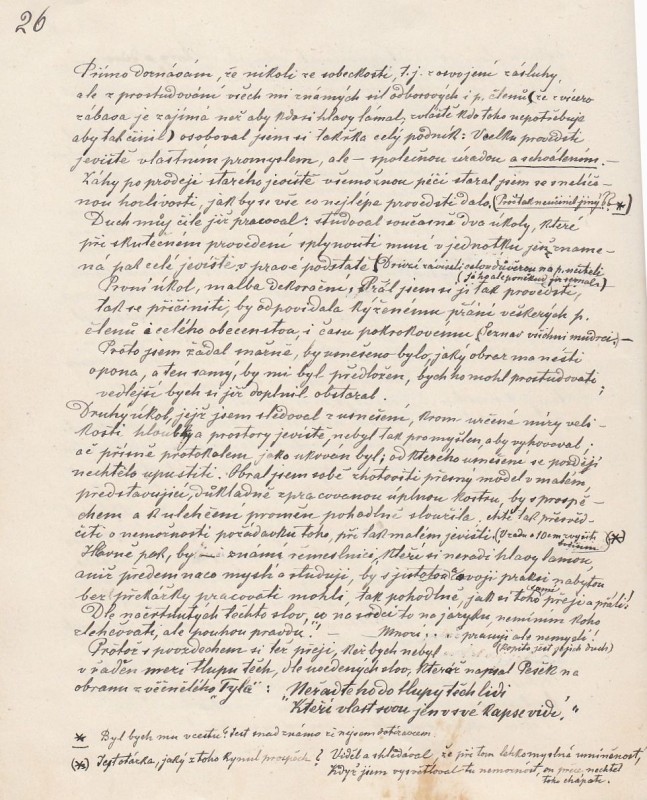 26
Přímo doznávám, že nikoli ze sobeckosti, t.j. z osvojení zásluhy,
ale z prostudování všech mi známých sil odborových i p. členů (že z vícero
zábava je zajímá než aby kdosi hlavy lámal, zvláště kdo toho nepotřebuje
aby tak činil) osoboval jsem si takřka celý podnik: V celku provésti
jeviště vlastním promyslem, ale – společnou úradou a schválením. –
Záhy po prodeji starého jeviště všemožnou péčí staral jsem se s neliče-
nou horlivostí, jak by se vše co nejlépe provésti dalo, (Proč tak neučinil jiný? *)
Duch můj čile již pracoval: studoval současně dva úkoly, které
při skutečném provedení splynouti musí v jednotku jenž zname-
ná pak celé jeviště, v pravé podstatě
První úkol, malba dekorační. Přál jsem si ji tak provésti,
tak se přičiniti, by odpovídala kýženému přání veškerých p.
členů i celého obecenstva, i času pokrokovému (Seznav všichni mudrci) –
Proto jsem žádal snažně, by usneseno bylo, jaký obraz má nésti
opona, a ten samý, by mi byl předložen, bych ho mohl prostudovati
vedlejší bych si již doplnil obstaral. ;
Druhý úkol, jejž jsem sledoval z usnešení, krom určené míry veli-
kosti hloubky a prostory jeviště, nebyl tak promyšlen, aby vyhovoval;
ač přísně protokolem jako ukován byl; od kterého usnešení se později
nechtělo upustiti. Obral jsem sobě zhotoviti přesný model v malém,
představující, důkladně zpracovanou úplnou kostru, by s prospě-
chem a k ulehčení proměn pohodlně sloužila, chtě tak přesvěd-
čiti o nemožnosti pořádavku toho, při tak malém jevišti.
Hlavně pak, by známí řemeslníci, kteří si neradi hlavy lámou,
aniž předem naco myslí a studují, by s jistotou svojí praksí nabytou
bez překážky pracovati mohli, tak pohodlně, jak si toho sami přejí a přáli!
Dle načrtnutých těchto slov, co na srdci to na jazyku nemíním koho
zlehčovati, ale pouhou pravdu." – Mnozí pracují ale nemyslí!
(kopito jest jejich duch)
Pročež s povzdechem si též přeji, kéž bych nebyl
v řaděn mezi tlupu těch, dle uvedených slov, kteráž napsal Pešek na
obranu zvěčnělého "Tyla": "Neřaďt ho do tlupy těch lidí
"Kteří vlast svou jen v své kapse vidí."
* Byl bych mu vcestu? Jest snad známo že nejsem
(*) Jest otázka, jaký z toho kynul prospěch? Viděl a shledával, že při tom lehkomyslná umíněnost,
Když jsem vysvětloval tu nemožnost, on přece nechtěl
toho chápati.